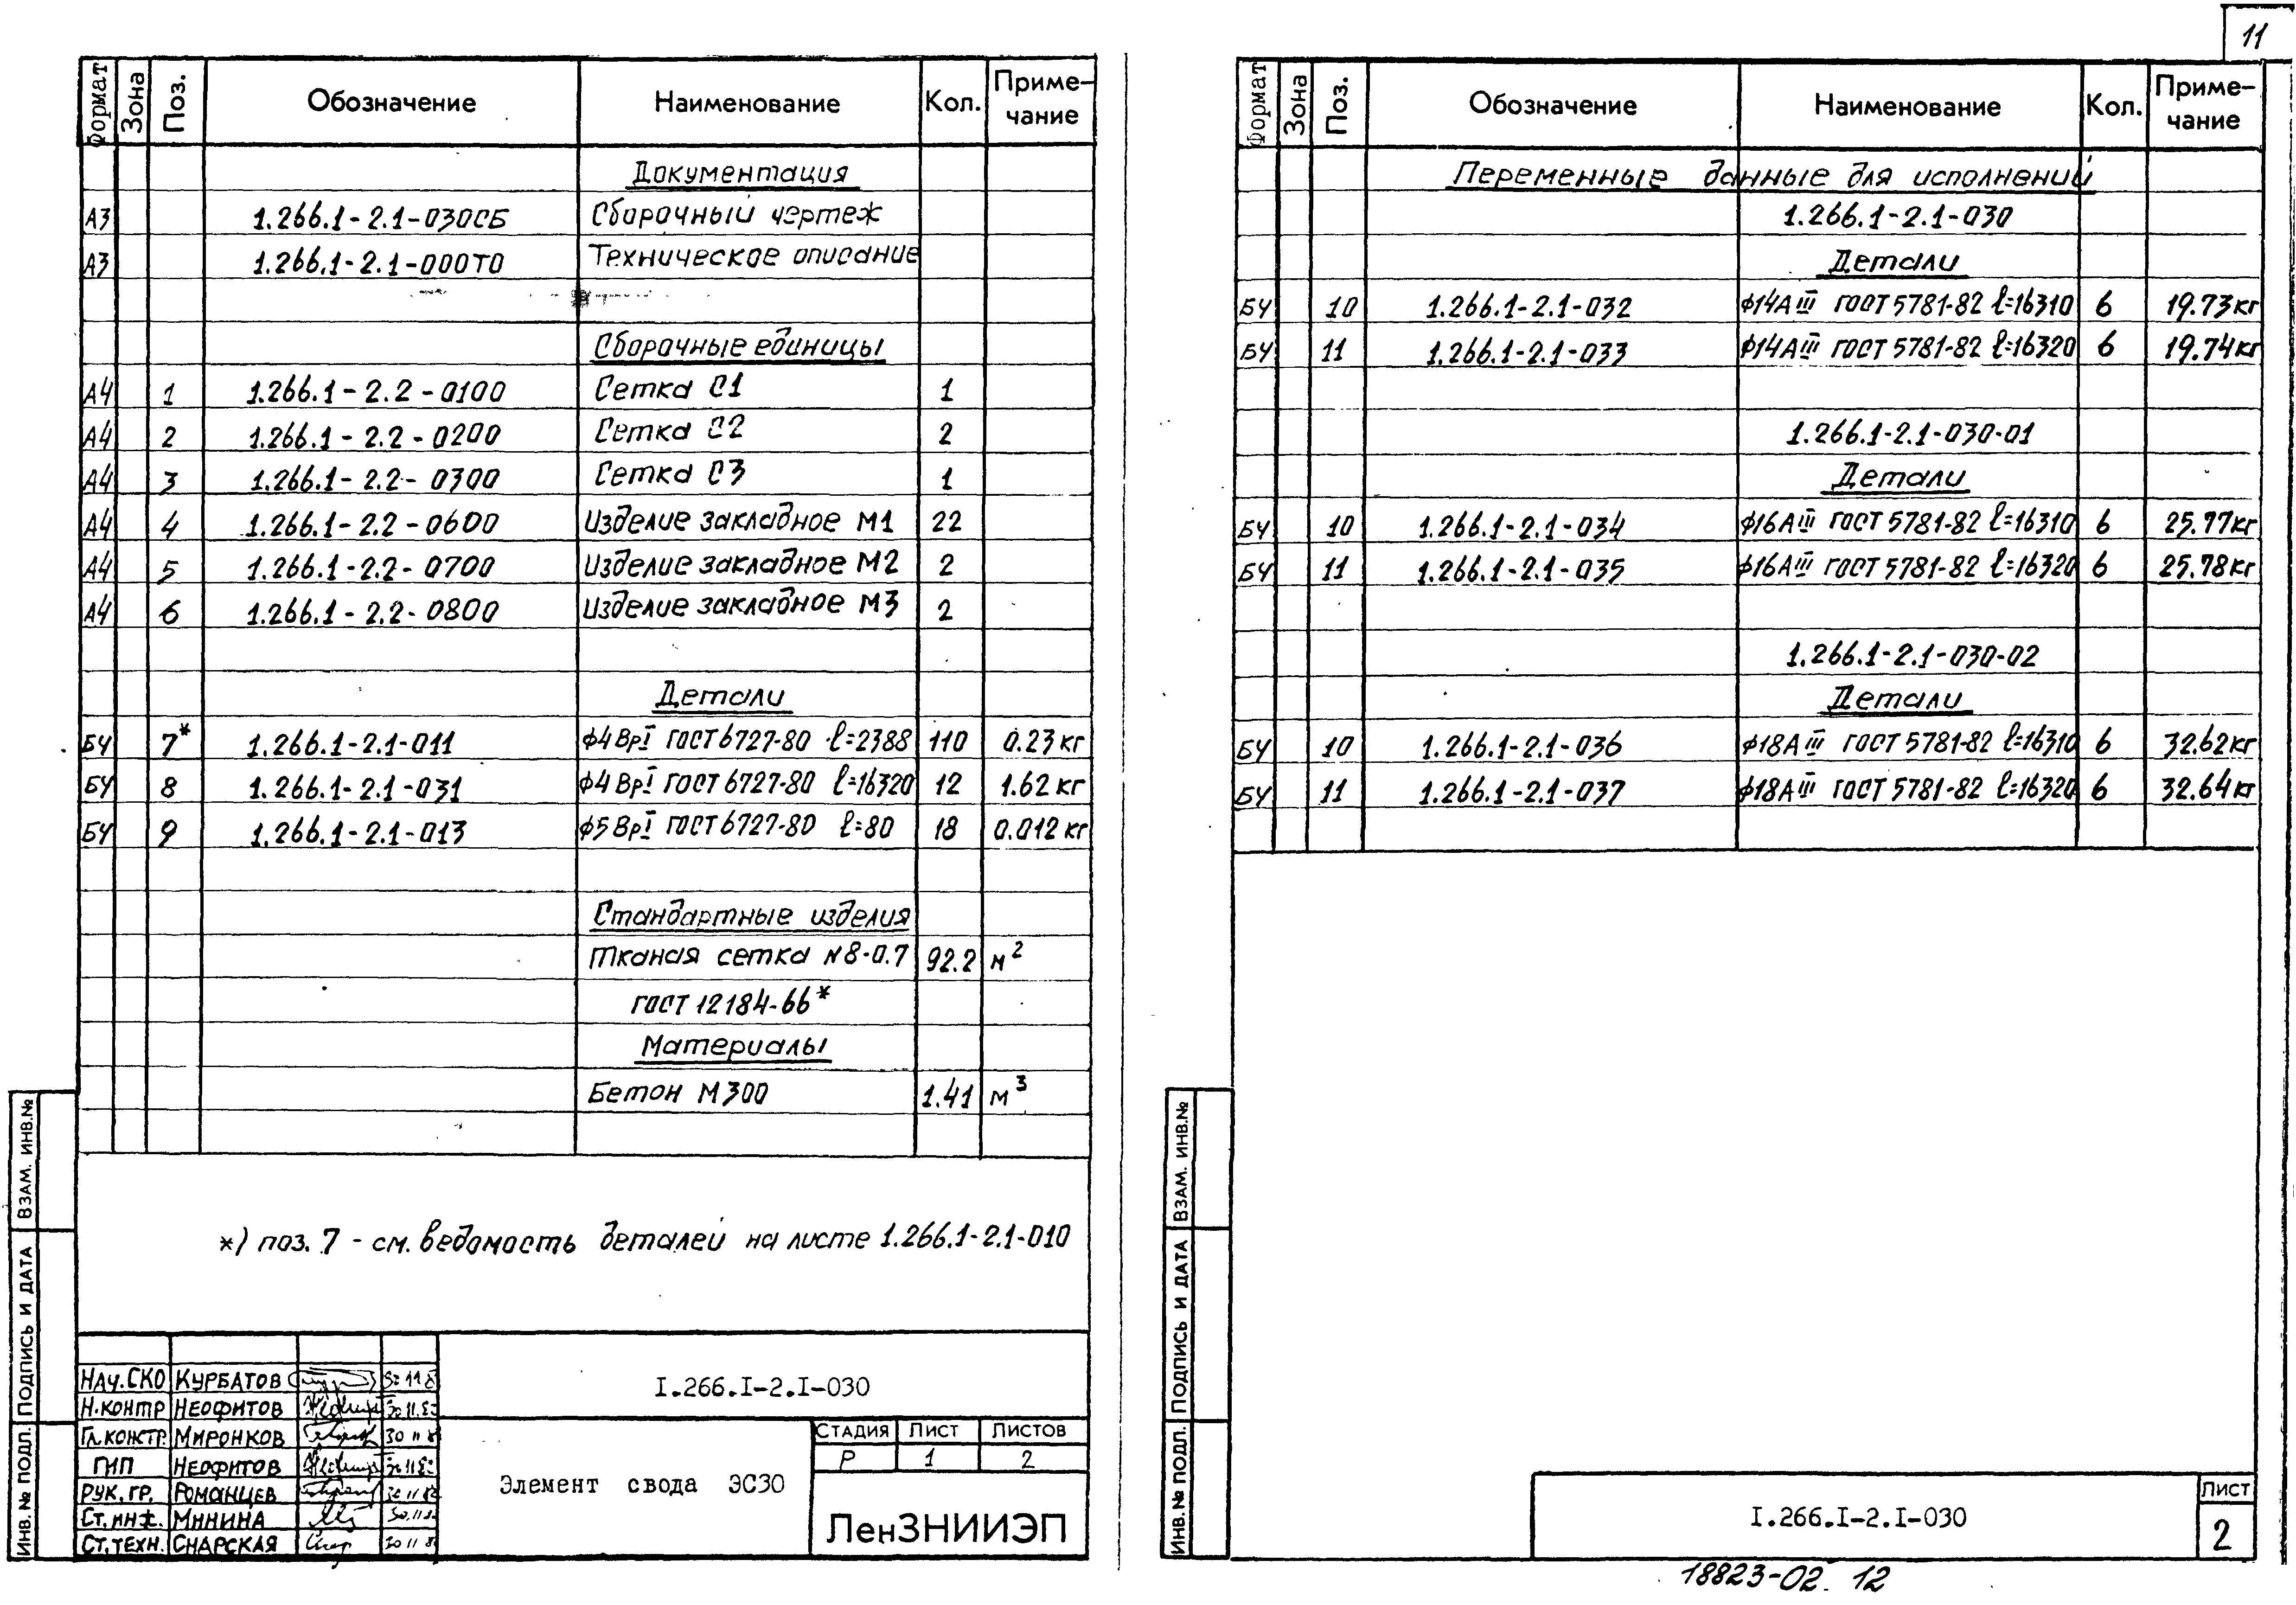 11
Формат Зона Поз. Обозначение Наименование Кол. Приме-чание
Документация
А3 1.266.1-2.1-030СБ Сборочный чертеж
А3 1.266.1-2.1-000ТО Техническое описание
Сборочные единицы
А4 1 1.266.1-2.2-0100 Сетка С1 1
А4 2 1.266.1-2.2-0200 Сетка С2 2
А4 3 1.266.1-2.2-0300 Сетка С3 1
А4 4 1.266.1-2.2-0600 Изделие закладное М1 22
А4 5 1.266.1-2.2-0700 Изделие закладное М2 2
А4 6 1.266.1-2.2-0800 Изделие закладное М3 2
Детали
БЧ 7* 1.266.1-2.1-011 ф4ВрI ГОСТ 6727-80 ℓ=2388 110 0.23 кг
БЧ 8 1.266.1-2.1-031 ф4ВрI ГОСТ 6727-80 ℓ=16320 12 1.62 кг
БЧ 9 1.266.1-2.1-013 ф5ВрI ГОСТ 6727-80 ℓ=80 18 0.012 кг
Стандартные изделия
Тканая сетка N8-0.7 92.2 м²
ГОСТ 12184-66*
Материалы
Бетон М300 1.41 м³
*) поз. 7 - см. ведомость деталей на листе 1.266.1-2.1-010
Нач. СКО Курбатов
Н. контр Неофитов
Гл. констр. Миронков
ГИП Неофитов
Рук. гр. Романцев
Ст. инж. Минина
Ст. техн. Снарская
I.266.I-2.I-030
Элемент свода ЭС30
Стадия Лист Листов
Р 1 2
ЛенЗНИИЭП
Инв. № подл. Подпись и дата Взам. инв. №
Формат Зона Поз. Обозначение Наименование Кол. Приме-чание
Переменные данные для исполнений
1.266.1-2.1-030
Детали
БЧ 10 1.266.1-2.1-032 ф14АIII ГОСТ 5781-82 ℓ=16310 6 19.73кг
БЧ 11 1.266.1-2.1-033 ф14АIII ГОСТ 5781-82 ℓ=16320 6 19.74кг
1.266.1-2.1-030-01
Детали
БЧ 10 1.266.1-2.1-034 ф16АIII ГОСТ 5781-82 ℓ=16310 6 25.77кг
БЧ 11 1.266.1-2.1-035 ф16АIII ГОСТ 5781-82 ℓ=16320 6 25.78кг
1.266.1-2.1-030-02
Детали
БЧ 10 1.266.1-2.1-036 ф18АIII ГОСТ 5781-82 ℓ=16310 6 32.62кг
БЧ 11 1.266.1-2.1-037 ф18АIII ГОСТ 5781-82 ℓ=16320 6 32.64кг
Инв. № подл. Подпись и дата Взам. инв. №
I.266.I-2.I-030
Лист
2
18823-02 12